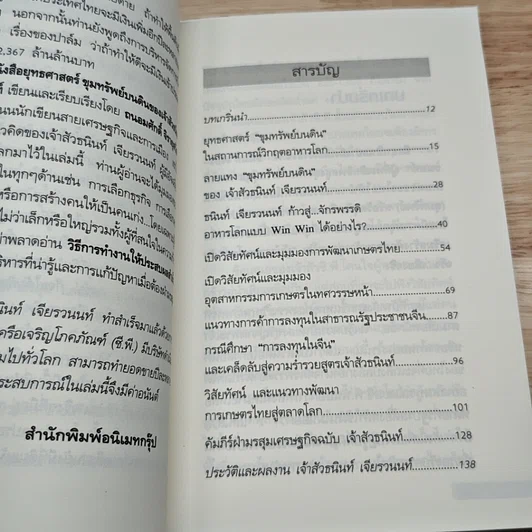 ประเทศไทยจะมีเงินเพิ่มอีกปีละ
นอกจากนั้นท่านยังพูดถึงการบริหาร
เรื่องของปาล์ม ว่าถ้าทำให้ดีจะมีเงิน
2,367 ล้านล้านบาท
หนังสือยุทธศาสตร์ ขุมทรัพย์บนดินของ
เขียนและเรียบเรียงโดย ถนอมศักดิ์
นักเขียนสายเศรษฐกิจและการเมือง
คิดของเจ้าสัวธนินท์ เจียรวนนท์
มาไว้ในเล่มนี้ ท่านผู้อ่านจะได้
ในทุกๆด้านเช่น การเลือกธุรกิจ การ
หรือการสร้างคนให้เป็นคนเก่ง..โดย
ไม่ว่าเล็กหรือใหญ่รวมทั้งผู้ที่สนใจใน
พลาดอ่าน วิธีการทำงานให้ประสบ
บริหารที่น่ารู้และการแก้ปัญหาเมื่อต้อง
ธนินท์ เจียรวนนท์ ทำสำเร็จมาแล้วด้วย
เครือเจริญโภคภัณฑ์ (ซี.พี.) มีบริษัท
ไปทั่วโลก สามารถทำยอดขายปีละ
ประสบการณ์ในเล่มนี้จึงมีค่าอนันต์
สำนักพิมพ์อนิเมทกรุ๊ป
สารบัญ
บทเกริ่นนำ 12
ยุทธศาสตร์ “ขุมทรัพย์บนดิน”
ในสถานการณ์วิกฤตอาหารโลก 15
ลายแทง “ขุมทรัพย์บนดิน”
ของ เจ้าสัวธนินท์ เจียรวนนท์ 28
ธนินท์ เจียรวนนท์ ก้าวสู่...จักรพรรดิ
อาหารโลกแบบ Win Win ได้อย่างไร? 40
เปิดวิสัยทัศน์และมุมมองการพัฒนาเกษตรไทย 54
เปิดวิสัยทัศน์และมุมมอง
อุตสาหกรรมการเกษตรในทศวรรษหน้า 69
แนวทางการค้าการลงทุนในสาธารณรัฐประชาชนจีน 87
กรณีศึกษา “การลงทุนในจีน”
และเคล็ดลับสู่ความร่ำรวยสูตรเจ้าสัวธนินท์ 96
วิสัยทัศน์ และแนวทางพัฒนา
การเกษตรไทยสู่ตลาดโลก 101
คัมภีร์ฝ่ามรสุมเศรษฐกิจฉบับ เจ้าสัวธนินท์ 128
ประวัติและผลงาน เจ้าสัวธนินท์ เจียรวนนท์ 138